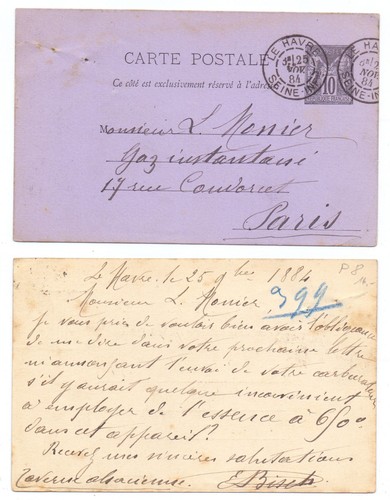 CARTE POSTALE
Ce côté est exclusivement réservé à l'adresse
LE HAVRE
25
NOV.
84
SEINE-INF
LE HAVRE
NOV
84
SEINE-IN
10
Monsieur L. Monier
Gaz instantané
17 rue Condorcet
Paris
Le Havre le 25 9bre 1884
P 8
399
Monsieur L. Monier,
Je vous prie de vouloir bien avoir l'obligeance
de me dire dans votre prochaine lettre
m'annonçant l'envoi de votre carburateur
s'il y aurait quelque inconvénient
à employer de l'essence à 650°
dans cet appareil?
Recevez mes sincères salutations
Taverne alsacienne.